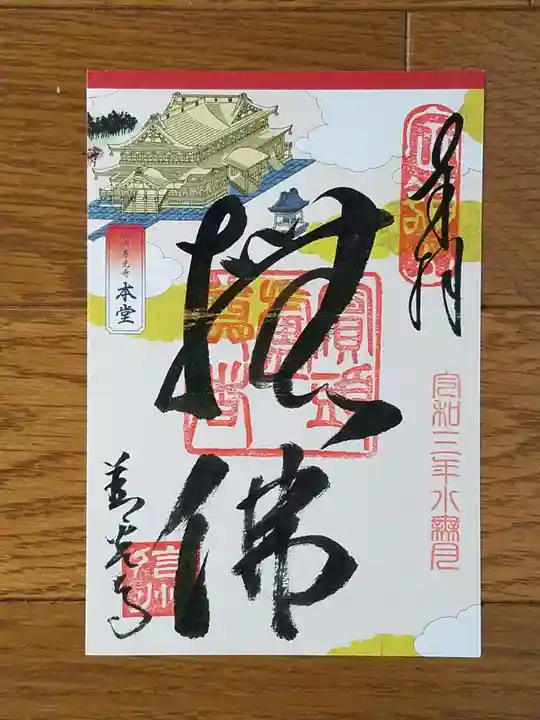 奉拝
令和三年水無月
撫佛
善光寺
信州
善光寺
本堂